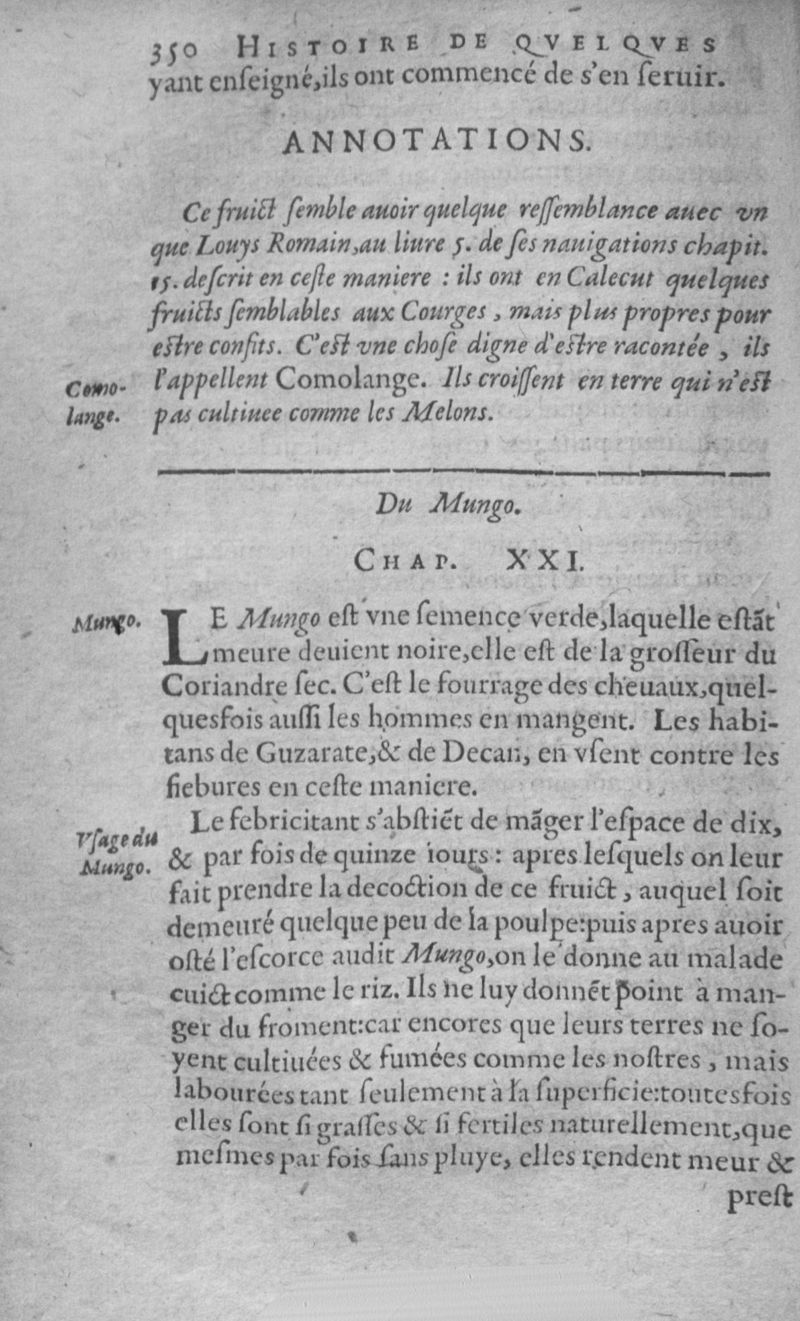 350 HISTOIRE DE QVELQVES
yant enſeigné,ils ont commencé de s'en ſeruir.
ANNOTATIONS.
Ce fruict ſemble auoir quelque reſſemblance auec vn
que Louys Romain,au liure 5. de ſes nauigations chapit.
15. deſcrit en ceſte maniere : ils ont en Calecut quelques
fruicts ſemblables aux Courges , mais plus propres pour
eſtre confits. C'eſt vne choſe digne d'eſtre racontée , ils
l'appellent Comolange. Ils croiſſent en terre qui n'eſt
pas cultiuee comme les Melons.
Como-
lange.
Du Mungo.
CHAP. XXI.
Mungo.
LE Mungo eſt vne ſemence verde,laquelle eſtãt
meure deuient noire,elle eſt de la groſſeur du
Coriandre ſec. C'eſt le fourrage des cheuaux,quel-
quesfois auſſi les hommes en mangent. Les habi-
tans de Guzarate,& de Decan, en vſent contre les
fiebures en ceſte maniere.
Vſage du
Mungo.
Le febricitant s'abſtiẽt de mãger l'eſpace de dix,
& par fois de quinze iours : apres leſquels on leur
fait prendre la decoction de ce fruict , auquel ſoit
demeuré quelque peu de la poulpe:puis apres auoir
oſté l'eſcorce audit Mungo,on le donne au malade
cuict comme le riz. Ils ne luy donnẽt point à man-
ger du froment:car encores que leurs terres ne ſo-
yent cultiuées & fumées comme les noſtres , mais
labourées tant ſeulement à la ſuperficie:toutesfois
elles ſont ſi graſſes & ſi fertiles naturellement,que
meſmes par fois ſans pluye, elles rendent meur &
preſt